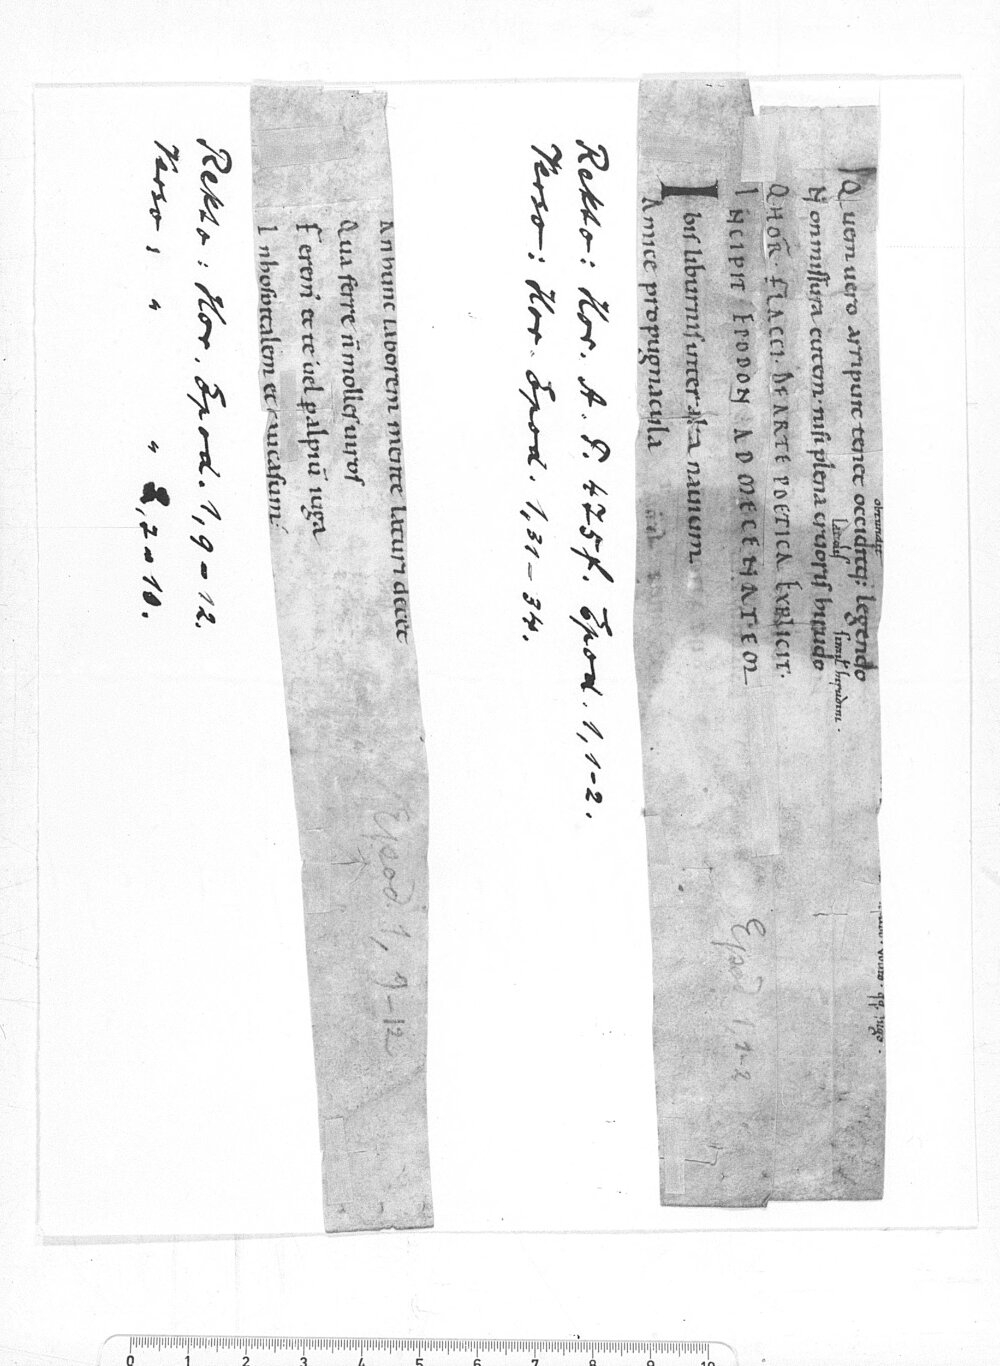 obtundit
Quem uero arripuit tenet occiditq; legendo
lacdes
simul hirudini.
Non missura cutem. nisi plena cruoris hirudo
Q HOR̄. FLACCI. DE ARTE POETICA EXPLICIT.
INCIPIT EPODON AD MECENATEM
Ibis liburnis inter alta nauium
Amice propugnacula
Epod 1, 1-2
Rekto: Hor. A. P. 475f. Epod. 1, 1-2.
Verso: Hor. Epod. 1, 31-34.
An hunc laborem mente laturi decet
Qua ferre n̄ molles uiros
Ferem̄ et te uel p alpiū iuga
Inhospitalem et caucasum.
Epod. 1, 9-12
Rekto: Hor. Epod. 1, 9-12.
Verso: " " 2, 7-10.
0 1 2 3 4 5 6 7 8 9 10